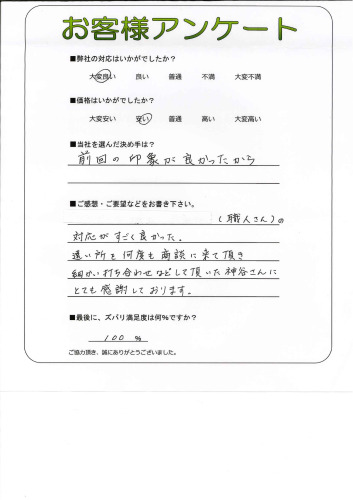 お客様アンケート
■弊社の対応はいかがでしたか?
大変良い 良い 普通 不満 大変不満
■価格はいかがでしたか?
大変安い 安い 普通 高い 大変高い
■当社を選んだ決め手は?
前回の印象が良かったから
■ご感想・ご要望などをお書き下さい。
(職人さん)の
対応がすごく良かった。
遠い所を何度も商談に来て頂き
細かい打ち合わせなどして頂いた神谷さんに
とても感謝しております。
■最後に、ズバリ満足度は何%ですか?
100 %
ご協力頂き、誠にありがとうございました。